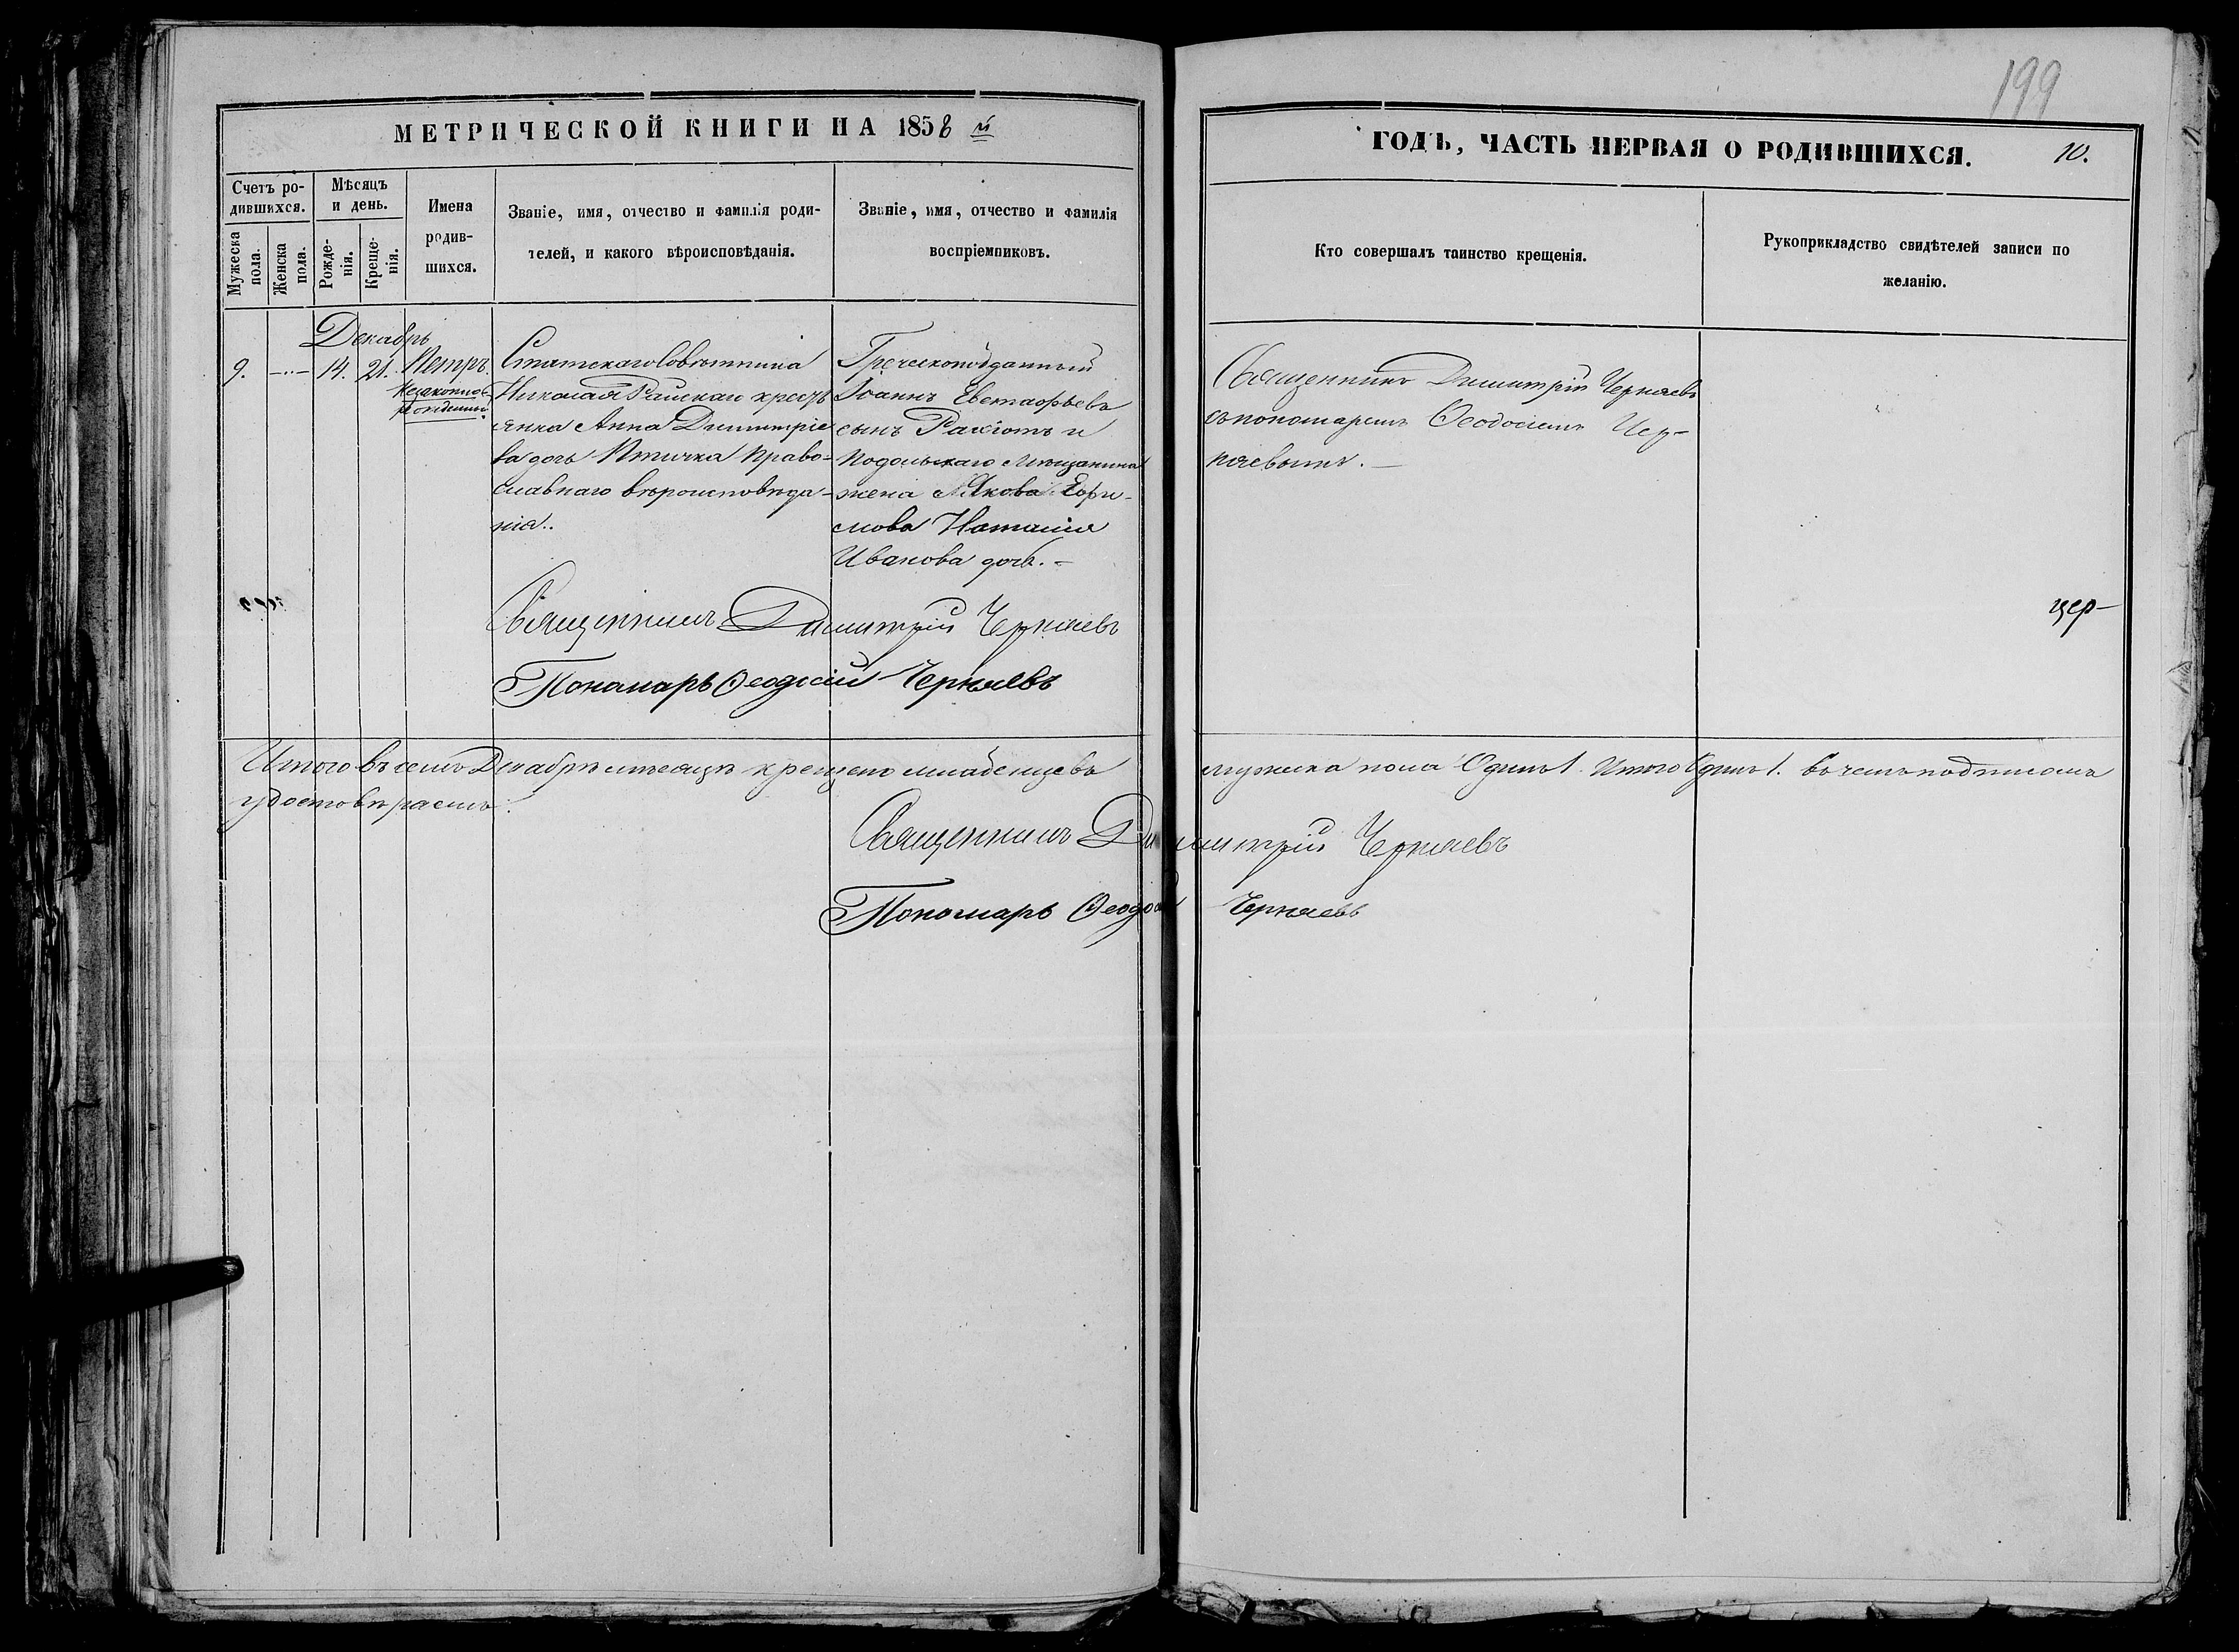 199
МЕТРИЧЕСКОЙ КНИГИ НА 1858 й
ГОДЪ, ЧАСТЬ ПЕРВАЯ О РОДИВШИХСЯ. 10.
Счетъ ро-
дившихся.
Мужеска
пола.
Женска
пола.
Мѣсяцъ
и день.
Рожде-
нія.
Креще-
нія.
Имена
родив-
шихся.
Званіе, имя, отчество и фамилія роди-
телей, и какого вѣроисповѣданія.
Званіе, имя, отчество и фамилія
воспріемниковъ.
Кто совершалъ таинство крещенія.
Рукоприкладство свидѣтелей записи по
желанію.
Декабрь
9. 14. 21. Петръ.
Незаконно-
рожденный
Статскаго Совѣтника
Николая Раискаго кресть
янка Анна Димитріе
ва дочь Птичка право-
славнаго вѣроисповѣда-
нія..
Греческоподданный
Іоаннъ Евстафьевъ
сынъ Ралістъ и
Подольскаго мѣщанина
жена Якова Ефи-
мова Наталія
Иванова дочь.
Священникъ Димитрій Черняевъ
съ пономаремъ Ѳеодосіемъ Чер-
няевымъ.
Священникъ Димитрій Черняевъ
Пономарь Ѳеодосій Черняевъ
цер-
Итого въ семъ Декабрѣ мѣсяцѣ крещено младенцевъ мужеска пола Одинъ 1. Итого Одинъ 1. въ чемъ подписомъ
удостовѣряемъ:
Священникъ Димитрій Черняевъ
Пономарь Ѳеодосій Черняевъ